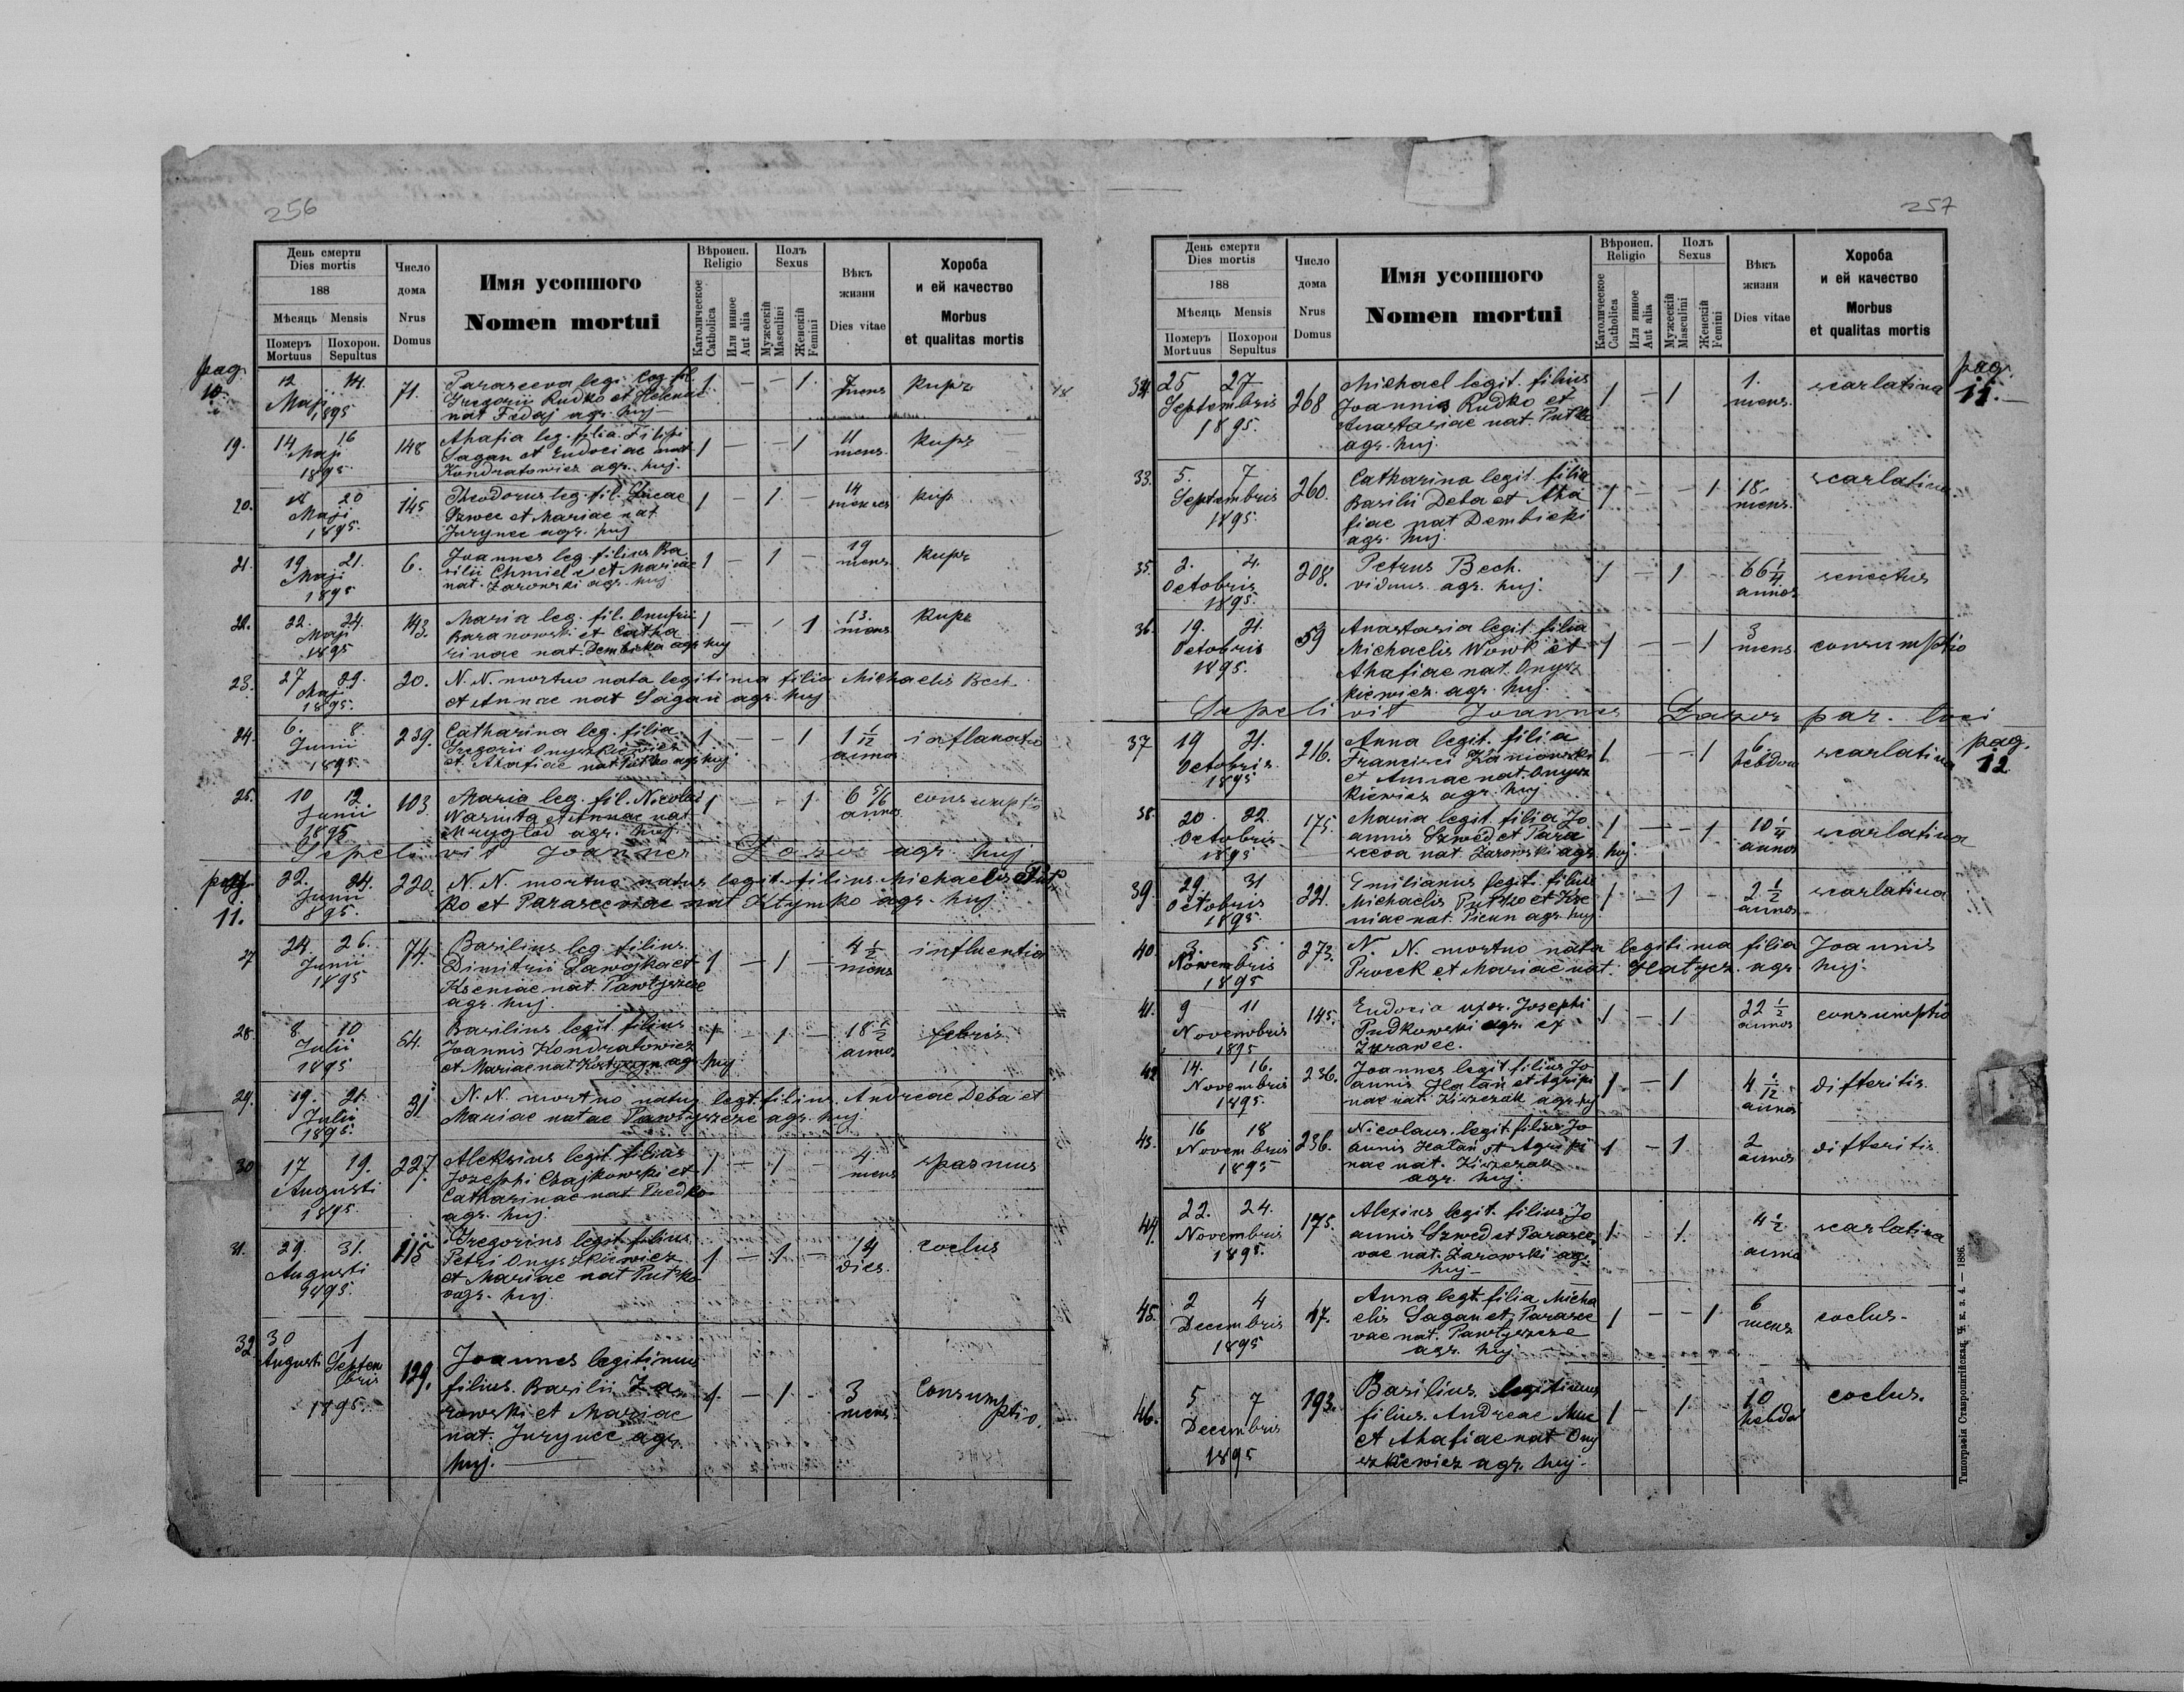 256
День смерти
Dies mortis
188
Мѣсяць Mensis
Померъ Похорон.
Mortuus Sepultus
Число
дома
Nrus
Domus
Имя усопшого
Nomen mortui
Вѣроисп.
Religio
Католическое
Catholica
Или инное
Aut alia
Полъ
Sexus
Мужескій
Masculini
Женскій
Femini
Вѣкъ
жизни
Dies vitae
Хороба
и ей качество
Morbus
et qualitas mortis
pag.
10.
12 14. 71. Parasceva leg. fil. 1. — — 1. 7 kupr
Maji Gregorii Rudko et Helenae mens
1895 nat Fedaj agr. huj
19. 14 16 148 Ahafia leg. filia Filipi 1 — — 1 11 kupr
Maji Sagan et Eudociae nat mens.
1895. Kondratowicz agr. huj.
20. 18 20 145 Theodorus leg. fil. Lucae 1 — 1. — 14 kupr
Maji Szwec et Mariae nat menses
1895. Jurynec agr. huj
21. 19 21. 6. Joannes leg. filius Ba 1 — 1 — 19 kupr
Maji silii Chmiel et Mariae mens.
1895 nat. Zarowski agr. huj
22. 22. 24. 143. Maria leg. fil. Onufrii 1 — 1 13. kupr
Maji Baranowski et Catha mens
1895 rinae nat. Dembicka agr huj
23. 27 29. 20. N. N. mortuo nata legitima filia Michaelis Bech
Maji et Annae nat Sagan agr. huj
1895.
24. 6. 8. 239. Catharina leg. filia 1 — — 1 1 1/12
Junii Gregorii Onyszkiewicz anno
1895 et Ahafiae nat Putko agr huj
25. 10 12. 103. Maria leg. fil. Nicolai 1 — - 1 6 5/6 consumptio
Junii Warmta et Annae nat anno
1895 Mryglod agr. huj.
Sepelivit Joannes Dozor agr. huj
pag.
11.
22. 24. 220. N. N. mortuo natus legit. filius Michaelis Put
Junii ko et Parasceviae nat Klymko agr. huj
1895.
27 24. 26. 74. Basilius leg. filius 1 — 1 — 4 1/2 influentia
Junii Dimitrii Lawojka et mens
1895 Kseniae nat. Pawlyszcze
agr. huj
28. 8 10 64. Basilius legit. filius 1 — 1 — 18 1/2 febris
Julii Joannis Kondratowicz annos
1895 et Mariae nat. agr. huj
29. 19. 21. 31 N. N. mortuo natus legt. filius Andreae Deba et
Julii Mariae natae Pawlyszcze agr. huj
1895.
30 17 19. 227. Aleksius legit filius 1 — 1 — 4. spasmus
Augusti Josephi Chajkowski et mens
1895. Catharinae nat Predko
agr. huj.
31. 29. 31. 215 Gregorius legit filius 1 — 1 — 14 coclus
Augusti Petri Onyszkiewicz dies.
1895. et Mariae nat Putko
agr. huj
32. 30 1 129. Joannes legitimus 1. — 1. — 3 consum
Augusti Septem filius Basilii Za mens. ptio.
bris rowski et Mariae
1895. nat. Jurynec agr.
huj.
257
День смерти
Dies mortis
188
Мѣсяць Mensis
Померъ Похорон
Mortuus Sepultus
Число
дома
Nrus
Domus
Имя усопшого
Nomen mortui
Вѣроисп.
Religio
Католическое
Catholica
Или инное
Aut alia
Полъ
Sexus
Мужескій
Masculini
Женскій
Femini
Вѣкъ
жизни
Dies vitae
Хороба
и ей качество
Morbus
et qualitas mortis
pag.
11.
34. 25 27 268 Michael legit. filius 1 — 1 1. scarlatina
Septembris Joannis Rudko et mens.
1895. Anastasiae nat. Putko
agr. huj.
33. 5. 7 260. Catharina legit filia 1 — — 1 18. scarlatina
Septembris Basilii Deba et Aha mens.
1895. fiae nat Dembicki
agr. huj.
35. 2. 4. 208. Petrus Bech. 1 — 1 66 1/4 senectus
Octobris viduus. agr. huj. annos
1895.
36. 19. 21. 59 Anastasia legit filia 1 — — 1 3 consumptio
Octobris Michaelis Wowk et mens.
1895. Ahafiae nat. Onysz
kiewicz. agr. huj.
Sepelivit Joannes Dozor par. loci
pag.
12
37 19 21. 216. Anna legit. filia 1 — — 1 6 scarlatina
Octobris Francisci Kamowski hebdom
1895 et Annae nat. Onysz
kiewicz agr. huj.
38. 20 22. 175. Maria legit. filia Jo 1 — — 1 10 1/4 scarlatina
Octobris annis Szwed et Para annos
1895 sceva nat. Zarowski agr. huj.
39. 29. 31 221. Emilianus legit. filius 1 — 1 — 2 1/2 scarlatina
Octobris Michaelis Putko et Kse annos
1895. niae nat. Picun agr. huj.
40 3. 5. 273. N. N. mortuo nata legitima filia Joannis
Novembris Prock et Mariae nat. Halycz. agr. huj.
1895
41. 9 11 145. Eudocia uxor. Josephi 1 — 1 22 1/2 consumptio
Novembris Pudkowski agr. ex annos
1895 Zurawec.
42 14. 16. 236. Joannes legit filius Jo 1. — 1 4 1/12 difteritis.
Novembris annis Halan et Agripi annos
1895. nae nat. Kiszczak agr. huj
43. 16 18 236. Nicolaus. legit. filius Jo 1 — 1. 2 difteritis.
Novembris annis Halan et Agripi annos
1895 nae nat. Kiszczak
agr. huj.
44. 22. 24. 175. Alexius legit. filius Jo 1. 1. 4 1/2 scarlatina
Novembris annis Szwed et Parasce anno
1895. vae nat. Zarowski agr.
huj —
45. 2 4 47. Anna legt. filia Micha 1 — — 1 6 coclus —
Decembris elis Sagan et Parasce mens
1895 vae nat. Pawlyszcze
agr. huj.
46. 5 7 193. Basilius legitimus 1 — 1. 10 coclus.
Decembris filius Andreae Muc hebdom
1895 et Ahafiae nat Ony
szkiewicz agr. huj —
Типографія Ставропигійская. Ч. к. з. 4 — 1886.